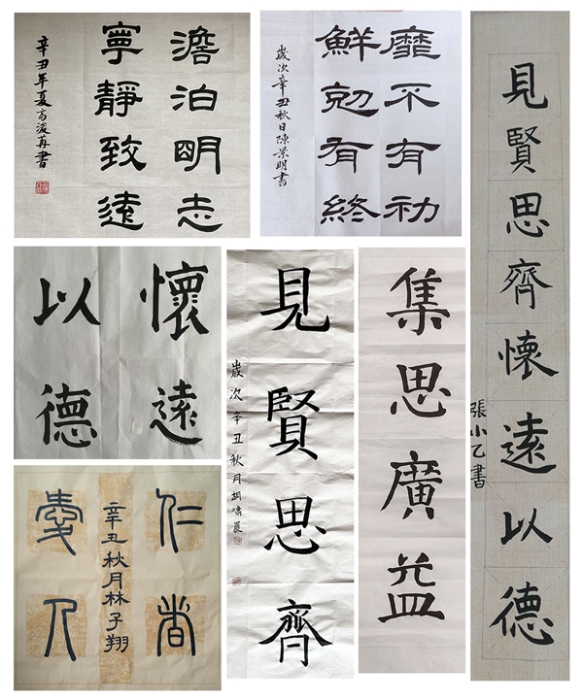 澹泊明志
寧靜致遠
辛丑年夏
書
靡不有初
鮮剋有終
歲次辛丑秋日陳景明書
見賢思齊懷遠以德
張小乙書
懷遠
以德
見賢思齊
歲次辛丑秋月胡嘯晨
集思廣益
仁者
辛丑秋月林子翔
愛人